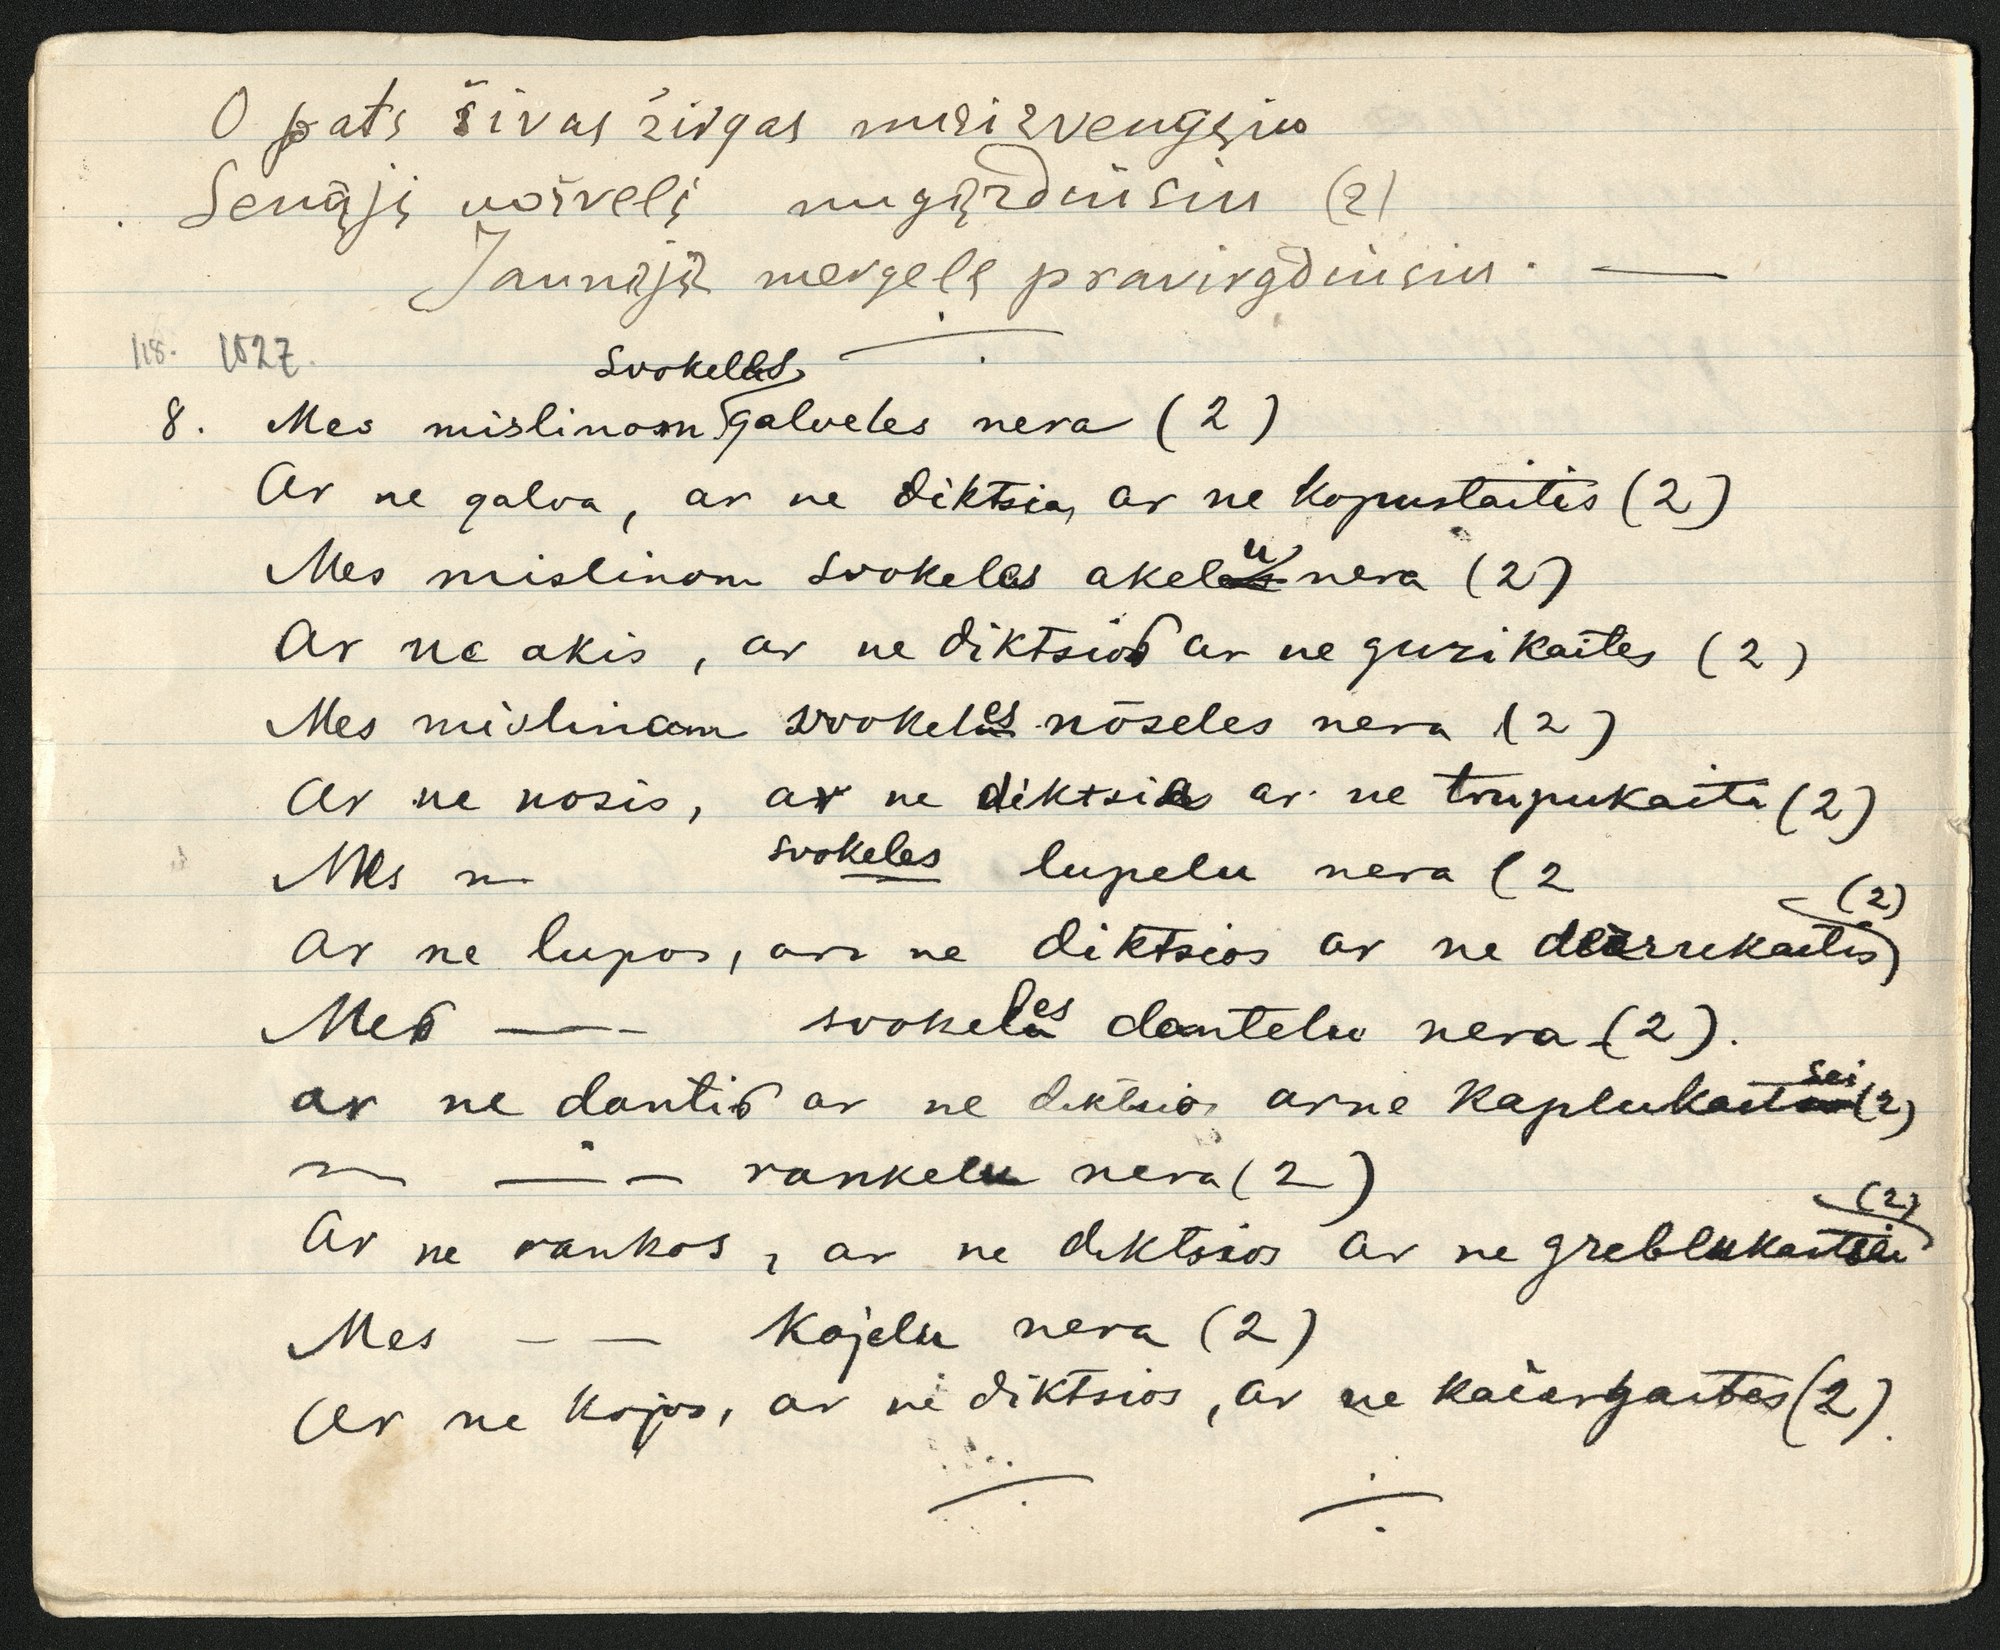 O pats širvas žirgas nusižvengsiu
Senąjį uošvelį nugązdįsiu (2)
Jaunąją mergelę pravirgdįsiu. —
118. 1527.
svokeles
8. Mes mislinom galveles nera (2)
Ar ne galva, ar ne diktsia, ar ne kopustaitis (2)
Mes mislinom svokeles akelu nera (2)
Ar ne akis, ar ne diktsios ar ne guzikaites (2)
Mes mislinom svokeles nōseles nera (2)
Ar ne nosis, ar ne diktsia ar ne trupukaitis (2)
Mes — svokeles lupelu nera (2
Ar ne lupos, ar ne diktsios ar ne (2)
Mes — svokeles dantelu nera (2).
ar ne dantis ar ne diktsios arne kaplukaitsei (2)
— — rankelu nera (2)
Ar ne rankos, ar ne diktsios ar ne greblukaitsei (2)
Mes — — kojelu nera (2)
Ar ne kojos, ar ne diktsios, ar ne kačergaites (2).